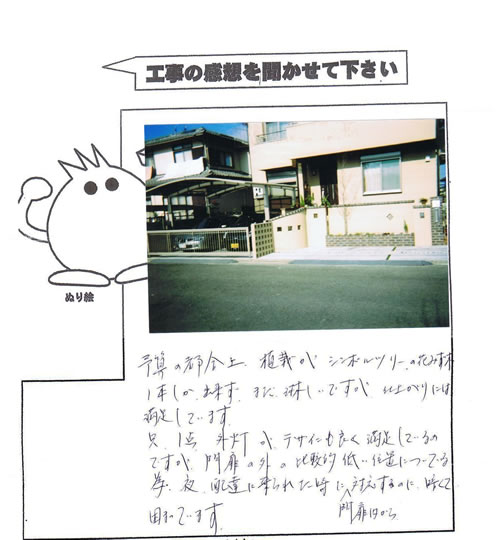 工事の感想を聞かせて下さい
ぬり絵
予算の都合上、植栽が シンボルツリーの花みずき
1本しか出来ず、まだ淋しいですが 仕上がりには
満足しています。
只、1点 外灯が、デザインも良く満足しているの
ですが、門扉の外の比較的低い位置についている
為、夜、配達に来られた時に対応するのに、暗くて
門扉内から
困っています。